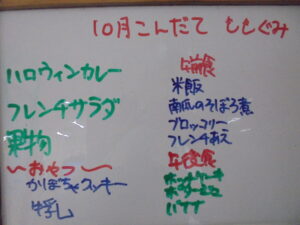 10月こんだて ももぐみ
ハロウィンカレー
フレンチサラダ
果物
〜おやつ〜
かぼちゃクッキー
牛乳
午前食
米飯
南瓜のそぼろ煮
ブロッコリー
フレンチあえ
午後食
ホットケーキ
バナナ